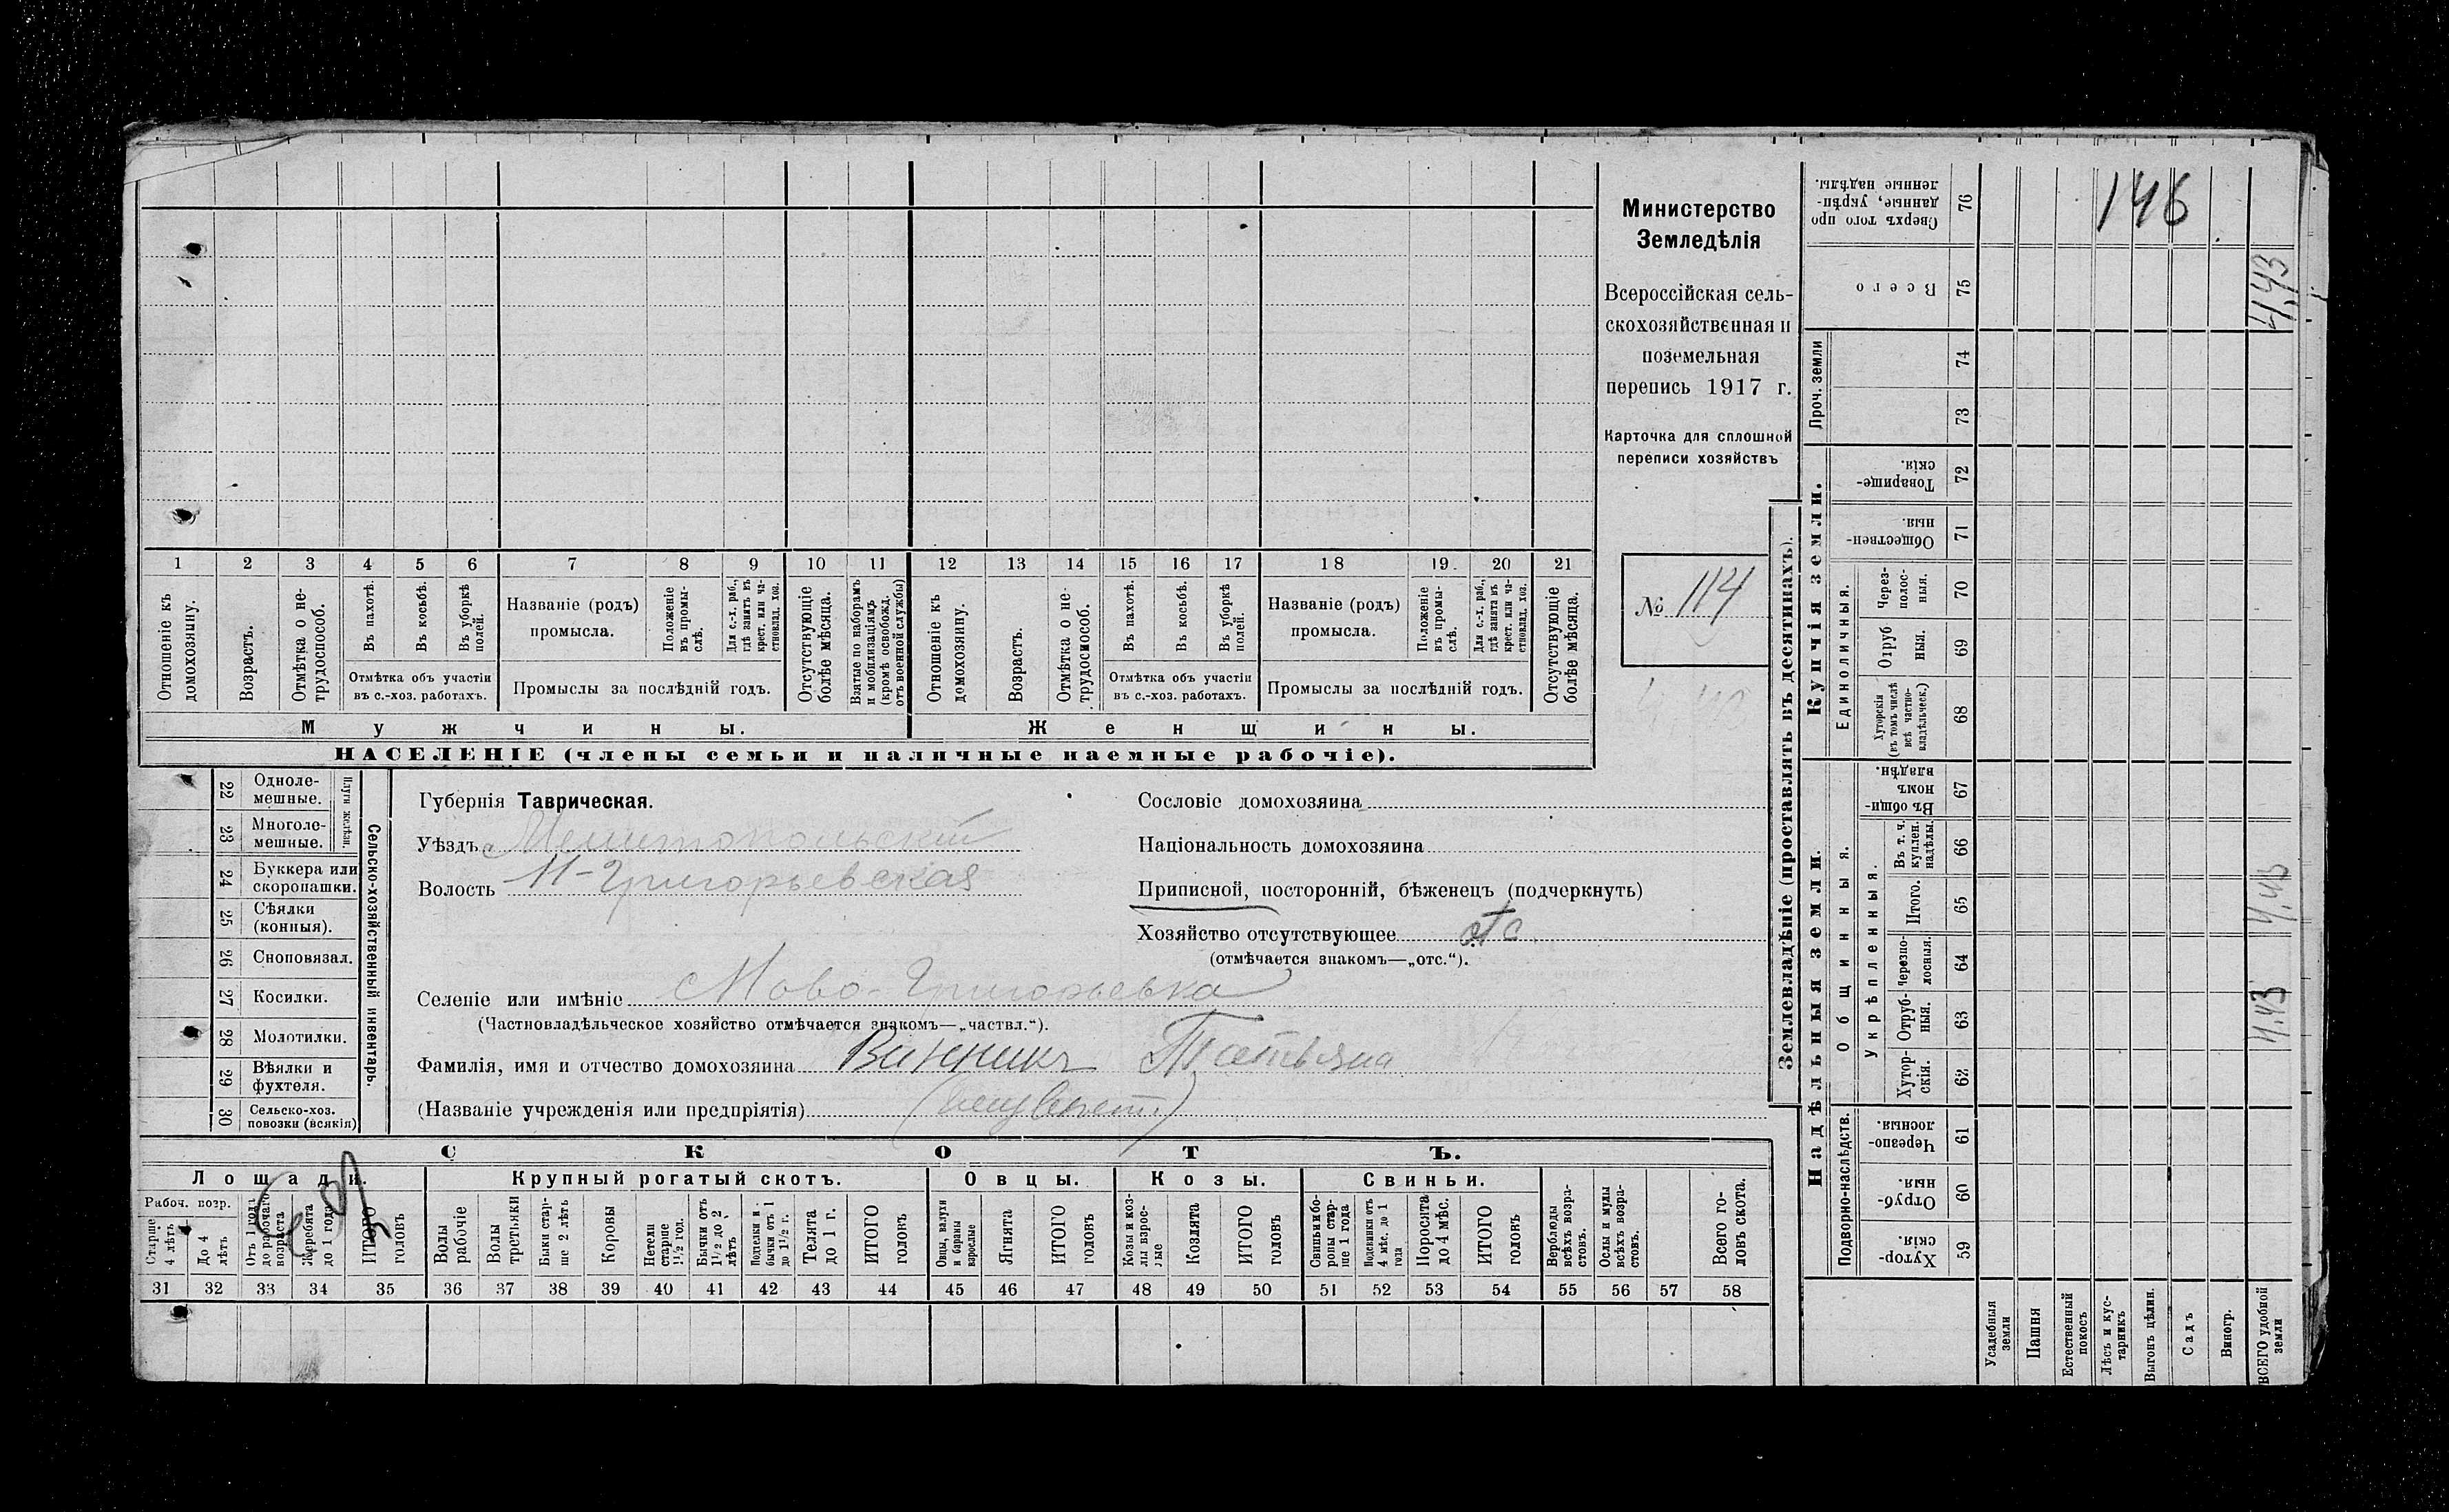 1 2 3 4 5 6 7 8 9 10 11 12 13 14 15 16 17 18 19 20 21
Отношеніе къ домохозяину.
Возрастъ.
Отмѣтка о не-
трудоспособ.
Въ пахотѣ.
Въ косьбѣ.
Въ уборкѣ
полей.
Отмѣтка объ участіи
въ с.-хоз. работахъ.
Названіе (родъ)
промысла.
Положеніе
въ промы-
слѣ.
Для с.-х. раб.,
гдѣ занятъ въ
крест. или ча-
стновлад. хоз.
Промыслы за послѣдній годъ.
Отсутствующіе
болѣе мѣсяца.
Взятые по наборамъ
и мобилизаціямъ
(кромѣ освобожд.
отъ военной службы)
Отношеніе къ
домохозяину.
Возрастъ.
Отмѣтка о не-
трудоспособ.
Въ пахотѣ.
Въ косьбѣ.
Въ уборкѣ
полей.
Отмѣтка объ участіи
въ с.-хоз. работахъ.
Названіе (родъ)
промысла.
Положеніе
въ промы-
слѣ.
Для с.-х. раб.,
гдѣ занята въ
крест. или ча-
стновлад. хоз.
Промыслы за послѣдній годъ.
Отсутствующіе
болѣе мѣсяца.
Мужчины.
Женщины.
НАСЕЛЕНІЕ (члены семьи и наличные наемные рабочіе).
Министерство
Земледѣлія
Всероссійская сель-
скохозяйственная и
поземельная
перепись 1917 г.
Карточка для сплошной
переписи хозяйствъ
№ 114
22 Одноле-
мешные.
23 Многоле-
мешные.
Плуги желѣзн.
24 Буккера или
скоропашки.
25 Сѣялки
(конныя).
26 Сноповязал.
27 Косилки.
28 Молотилки.
29 Вѣялки и
фухтеля.
30 Сельско-хоз.
повозки (всякія)
Сельско-хозяйственный инвентарь.
Губернія Таврическая.
Уѣздъ Мелитопольскій
Волость Н-Григорьевская
Селеніе или имѣніе Ново-Григорьевка
(Частновладѣльческое хозяйство отмѣчается знакомъ—„частвл.“).
Фамилія, имя и отчество домохозяина Винникъ Татьяна
(Названіе учрежденія или предпріятія)
Сословіе домохозяина
Національность домохозяина
Приписной, посторонній, бѣженецъ (подчеркнуть)
Хозяйство отсутствующее отс
(отмѣчается знакомъ—„отс.“).
СКОТЪ.
Лошади.
Рабоч. возр.
Старше
4 лѣтъ
До 4
лѣтъ
Отъ 1 года
до рабочаго
возраста
Жеребята
до 1 года
ИТОГО
головъ
Крупный рогатый скотъ.
Волы
рабочіе
Волы
третьяки
Быки стар-
ше 2 лѣтъ
Коровы
Нетели
старше
1½ год.
Бычки отъ
1½ до 2
лѣтъ
Подтелки и
бычки отъ 1
до 1½ г.
Телята
до 1 г.
ИТОГО
головъ
Овцы.
Овцы, валухи
и бараны
взрослые
Ягнята
ИТОГО
головъ
Козы.
Козы и коз-
лы взрос-
лые
Козлята
ИТОГО
головъ
Свиньи.
Свиньи и бо-
ровы стар-
ше 1 года
Подсвинки отъ
4 мѣс. до 1
года
Поросята
до 4 мѣс.
ИТОГО
головъ
Верблюды
всѣхъ возра-
стовъ.
Ослы и мулы
всѣхъ возра-
стовъ.
Всего го-
ловъ скота.
31 32 33 34 35 36 37 38 39 40 41 42 43 44 45 46 47 48 49 50 51 52 53 54 55 56 57 58
Землевладѣніе (проставлять въ десятинахъ).
Купчія земли.
Надѣльныя земли.
Сверхъ того про
данные, укрѣп-
ленные надѣлы.
76
146
Всего
75
4,43
Проч. земли
74
73
Товарище-
скія.
72
Обществен-
ныя.
71
Единоличныя.
Через-
полос-
ныя.
70
Отруб-
ныя.
69
Хуторскія
(въ томъ числѣ
всѣ частно-
владѣльческ.)
68
Общинныя.
Въ общи-
номъ
владѣн.
67
Укрѣпленныя.
Въ т. ч.
куплен.
надѣлы.
66
Итого.
65
4,43
Черезпо-
лосныя.
64
Отруб-
ныя.
63
4.43
Хутор-
скія.
62
Подворно-наслѣдств.
Черезпо-
лосныя.
61
Отруб-
ныя.
60
Хутор-
скія.
59
Усадебныя
земли
Пашня
Естественный
покосъ
Лѣсъ и кус-
тарникъ
Выгонъ цѣлин.
Садъ
Виногр.
ВСЕГО удобной
земли